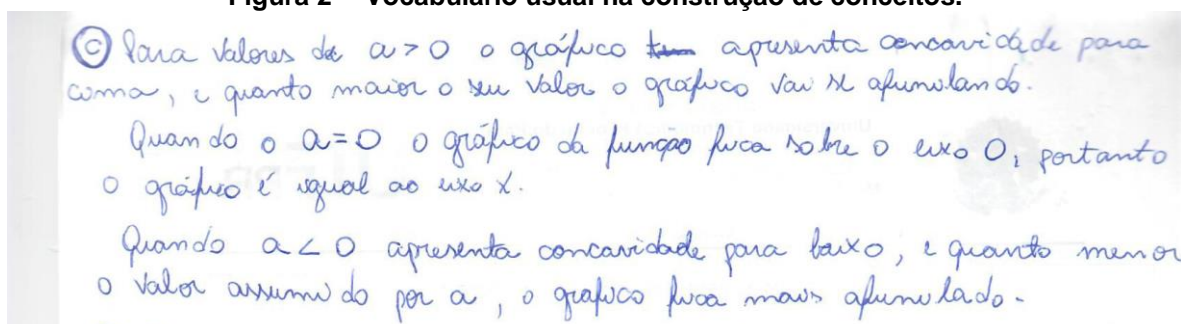 Figura 2 – Vocabulário usual na construção de conceitos.
© Para valores de a > 0 o gráfico apresenta concavidade para
cima, e quanto maior o seu valor o gráfico vai se afunilando.
Quando o a = 0 o gráfico da função fica sobre o eixo 0, portanto
o gráfico é igual ao eixo x.
Quando a < 0 apresenta concavidade para baixo, e quanto menor
o valor assumido por a, o grafico fica mais afunilado.